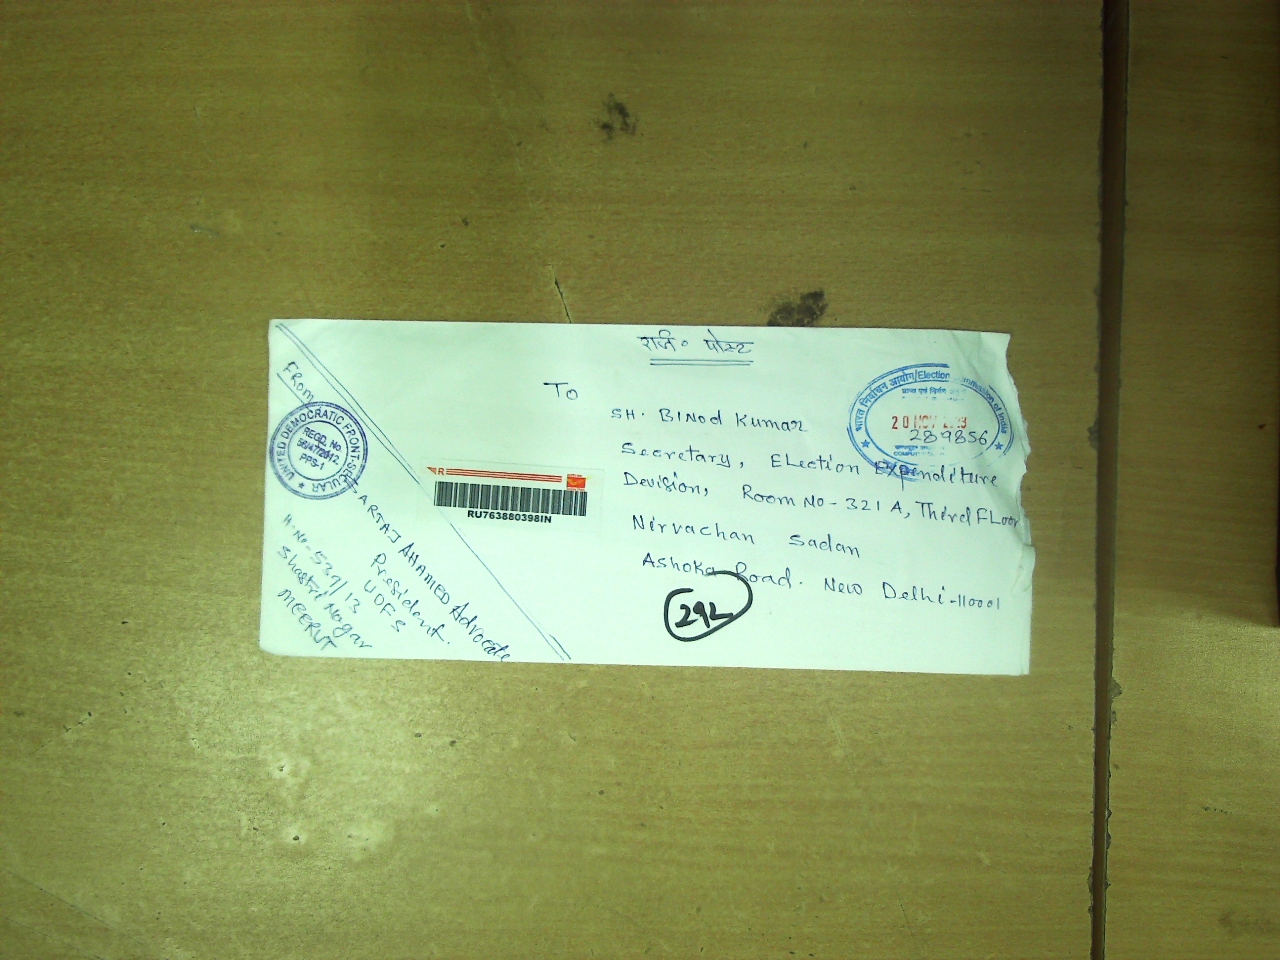 रजि० पोस्ट
TO
SH. BINod Kumar
Secretary, ELection Expenditure
Devision, Room No-321 A, Third FLoor
Nirvachan Sadan
Ashoka Road. New Delhi-110001
292
भारत निर्वाचन आयोग/Election Commission of India
20 NOV
289856
R
RU763880398IN
From
UNITED DEMOCRATIC FRONT-SECULAR
REGD. No.
56/47/2012
PPS-1
ARTAJ AHAMED Advocate
President.
UDFS
H.No-539/13
Shastri Nagar
MEERUT